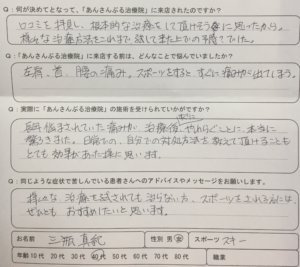 Q:何が決めてとなって、「あんさんぶる治療院」に来店されたのですか?
口コミを拝見し、根本的な治療をして頂けそうに思ったから。
様々な治療方法をこれまで試して来た上での予約でした。
Q:「あんさんぶる治療院」に来店する前は、どんなことで悩んでいましたか?
左肩、首、腰の痛み。スポーツをするとすぐに痛みが出てしまう。
Q:実際に「あんさんぶる治療院」の施術を受けられていかがですか?
長年悩まされていた痛みが、治療後、やわらぐことに本当に
驚きました。日常での、自分での対処方法を教えて頂けることも
とても効果があった様に思います。
Q:同じような症状で苦しんでいる患者さんへのアドバイスやメッセージをお願いします。
様々な治療を試されても治らない方、スポーツをされる方には
ぜひとも おすすめしたいと思います。
お名前 三瓶真紀 性別 男・女 スポーツ スキー
年齢 10代 20代 30代 40代 50代 60代 70代 職業